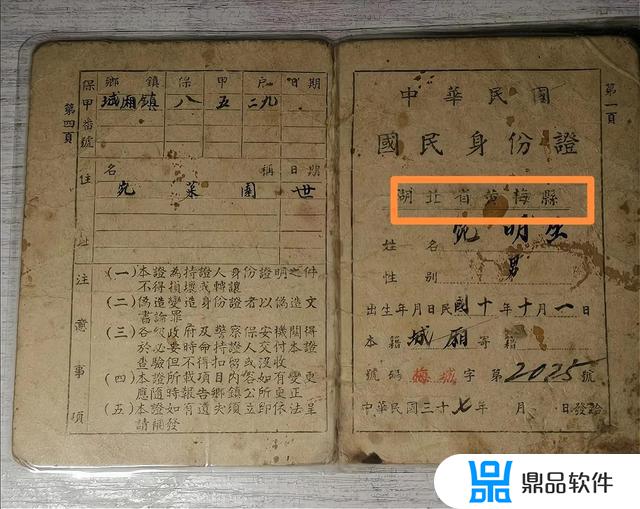 第一頁
中華民國
國民身份證
湖北省黄梅縣
姓名 宛明生
性别 男
出生年月日民國十年十月一日
本籍 城厢 寄籍
號码 梅城字第2025號
中華民國三十七年 月 日發給
第四頁
保甲番號
鄉鎮 保 甲 戶 日期
城厢鎮 八 五 二九
住址
名稱 日期
宛菜園
注意事項
(一)本證為持證人身份證明之件
不得損壞或轉讓
(二)偽造變造身份證者以偽造文
書論罪
(三)各級政府及警察保安機關得
於必要時命持證人交付本證
查驗但不得扣留或没收
(四)本證所載項目內容如有變更
應隨時報告鄉鎮公所更正
(五)本證如有遺失須立即依法呈
請補發
鼎品软件